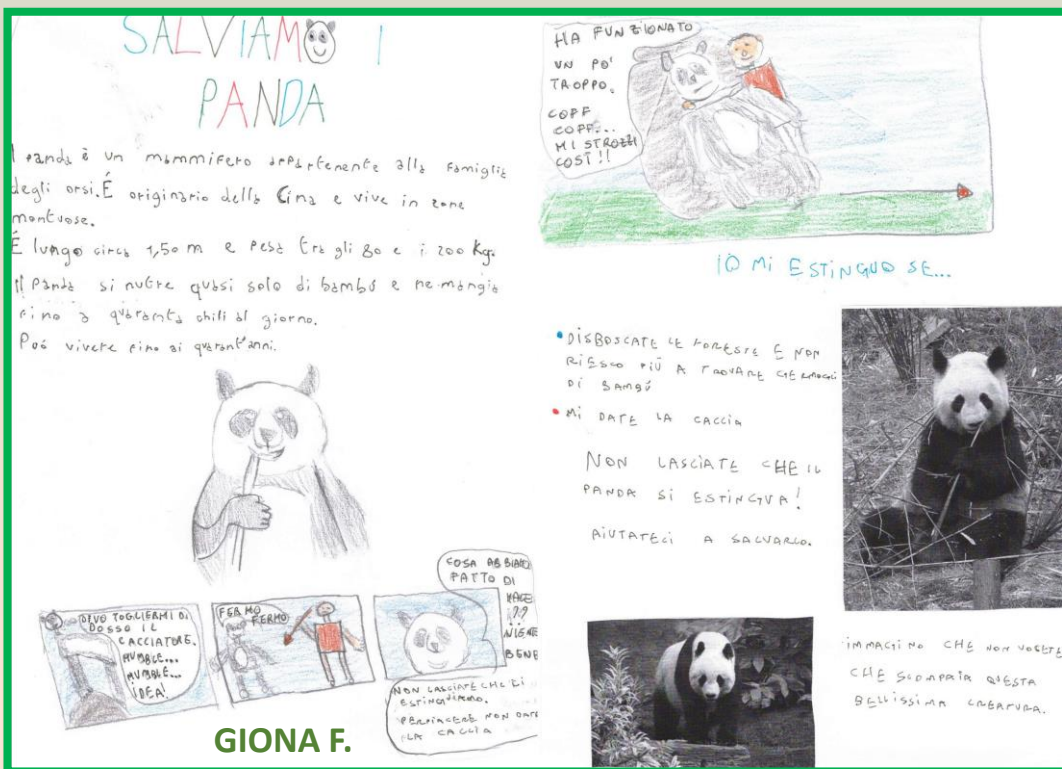 SALVIAMO I
PANDA
Il panda è un mammifero appartenente alla famiglia
degli orsi. É originario della Cina e vive in zone
montuose.
É lungo circa 1,50 m e pesa tra gli 80 e i 200 Kg.
Il Panda si nutre quasi solo di bambù e ne mangia
fino a quaranta chili al giorno.
Può vivere fino ai quarant'anni.
DEVO TOGLIERMI DI
DOSSO IL
CACCIATORE.
MUMBLE...
MUMBLE...
IDEA!
FERMO
FERMO
COSA ABBIAMO
FATTO DI
MALE
??
NIENTE
BENE
NON LASCIATE CHE CI
ESTINGUIAMO.
PERPIACERE NON DATECI
LA CACCIA
GIONA F.
HA FUNZIONATO
UN PO'
TROPPO.
COFF
COFF...
MI STROZZI
COSÌ!!
IO MI ESTINGUO SE...
• DISBOSCATE LE FORESTE E NON
RIESCO PIÙ A TROVARE GERMOGLI
DI BAMBÙ
• MI DATE LA CACCIA
NON LASCIATE CHE IL
PANDA SI ESTINGUA!
AIUTATECI A SALVARLO.
IMMAGINO CHE NON VOGLIATE
CHE SCOMPAIA QUESTA
BELLISSIMA CREATURA.